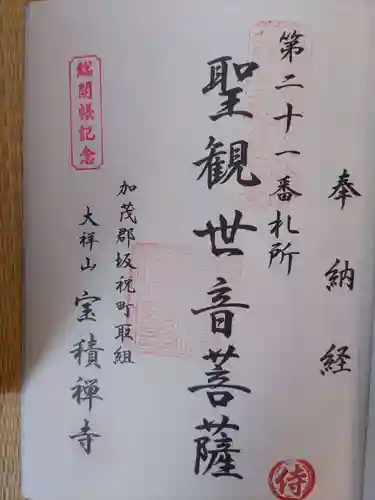 奉納経
第二十一番札所
聖観世音菩薩
加茂郡坂祝町取組
大祥山 宝積禅寺
総開帳記念
侍